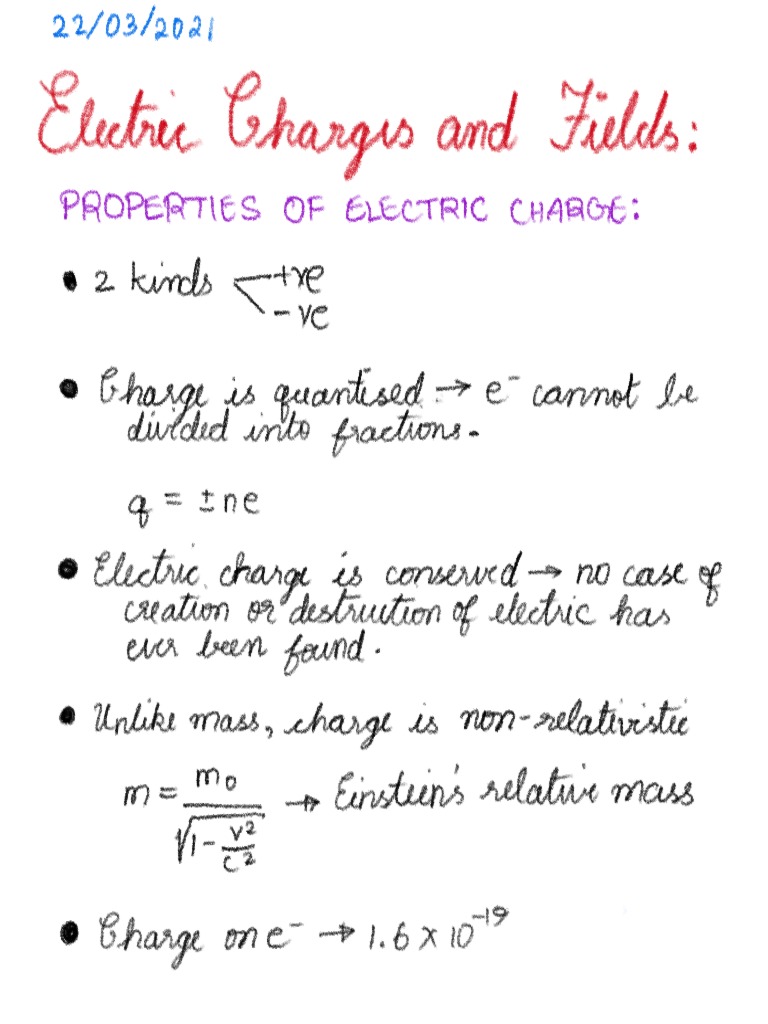 22/03/2021
Electric Charges and Fields:
PROPERTIES OF ELECTRIC CHARGE:
• 2 kinds +ve
- ve
• Charge is quantised → e⁻ cannot be
divided into fractions.
q = ±ne
• Electric charge is conserved → no case of
creation or destruction of electric has
ever been found.
• Unlike mass, charge is non-relativistic
m = m₀ / √(1 - v²/c²) → Einstein's relative mass
• Charge on e⁻ → 1.6 × 10⁻¹⁹